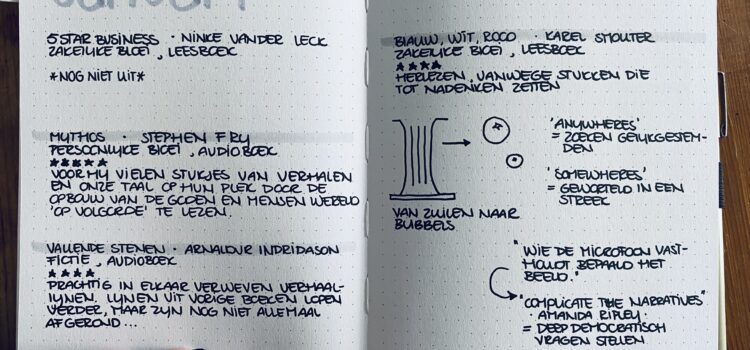 JANUARI
5 STAR BUSINESS · NINKE VANDER LECK
ZAKELIJKE BLOEI, LEESBOEK
*NOG NIET UIT*
MYTHOS · STEPHEN FRY
PERSOONLIJKE BLOEI, AUDIOBOEK
★★★★★
VOOR MIJ VIELEN STUKJES VAN VERHALEN
EN ONZE TAAL OP HUN PLEK DOOR DE
OPBOUW VAN DE GODEN EN MENSEN WERELD
'OP VOLGORDE' TE LEZEN.
VALLENDE STENEN · ARNALDUR INDRIDASON
FICTIE, AUDIOBOEK
★★★★
PRACHTIG IN ELKAAR VERWEVEN VERHAAL-
LIJNEN. LIJNEN UIT VORIGE BOEKEN LOPEN
VERDER, MAAR ZIJN NOG NIET ALLEMAAL
AFGEROND...
BLAUW, WIT, ROOD · KAREL SMOUTER
ZAKELIJKE BLOEI, LEESBOEK
★★★★
HERLEZEN, VANWEGE STUKKEN DIE
TOT NADENKEN ZETTEN
'ANYWHERES'
= ZOEKEN GELIJKGESTEM-
DEN
'SOMEWHERES'
= GEWORTELD IN EEN
STREEK
VAN ZUILEN NAAR
BUBBELS
"WIE DE MICROFOON VAST-
HOUDT BEPAALD HET
BEELD."
"COMPLICATE THE NARRATIVES"
· AMANDA RIPLEY ·
= DEEP DEMOCRATISCH
VRAGEN STELLEN